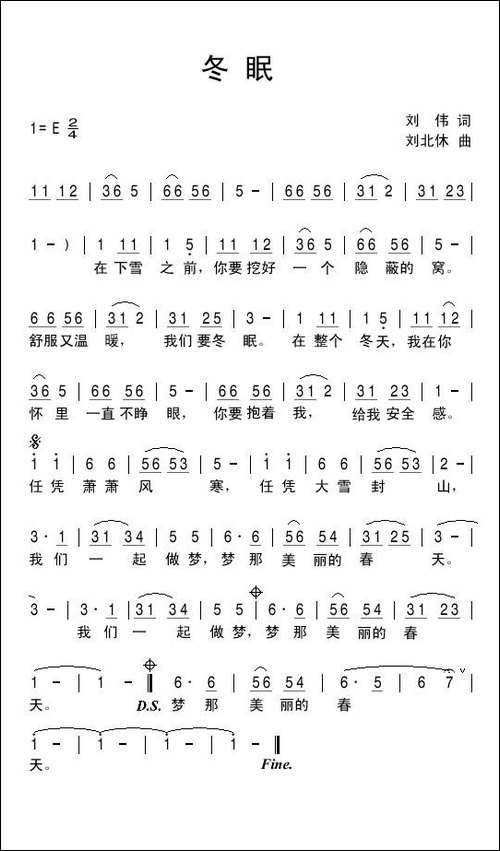 冬 眠
1= E 2/4
刘 伟 词
刘北休 曲
11 12 | 36 5 | 66 56 | 5 - | 66 56 | 31 2 | 31 23 |
1 - ) | 1 11 | 1 5 | 11 12 | 36 5 | 66 56 | 5 - |
在 下雪 之 前，你要 挖好 一 个 隐 蔽的 窝。
6 6 56 | 31 2 | 31 25 | 3 - | 1 11 | 1 5 | 11 12 |
舒服 又温 暖， 我们 要冬 眠。 在 整个 冬 天，我在 你
36 5 | 66 56 | 5 - | 66 56 | 31 2 | 31 23 | 1 - |
怀 里 一直 不睁 眼， 你要 抱着 我， 给我 安全 感。
1 1 | 6 6 | 56 53 | 5 - | 1 1 | 6 6 | 56 53 | 2 - |
任 凭 萧 萧 风 寒， 任 凭 大 雪 封 山，
3· 1 | 31 34 | 5 5 | 6· 6 | 56 54 | 31 25 | 3 - |
我 们 一 起 做 梦，梦 那 美 丽的 春 天。
3 - | 3· 1 | 31 34 | 5 5 | 6· 6 | 56 54 | 31 23 |
我 们 一 起 做 梦，梦 那 美 丽的 春
1 - | 1 - ‖ 6· 6 | 56 54 | 6· 5 | 6 7 |
天。 D.S. 梦 那 美 丽的 春
1 - | 1 - | 1 - | 1 - ‖
天。 Fine.